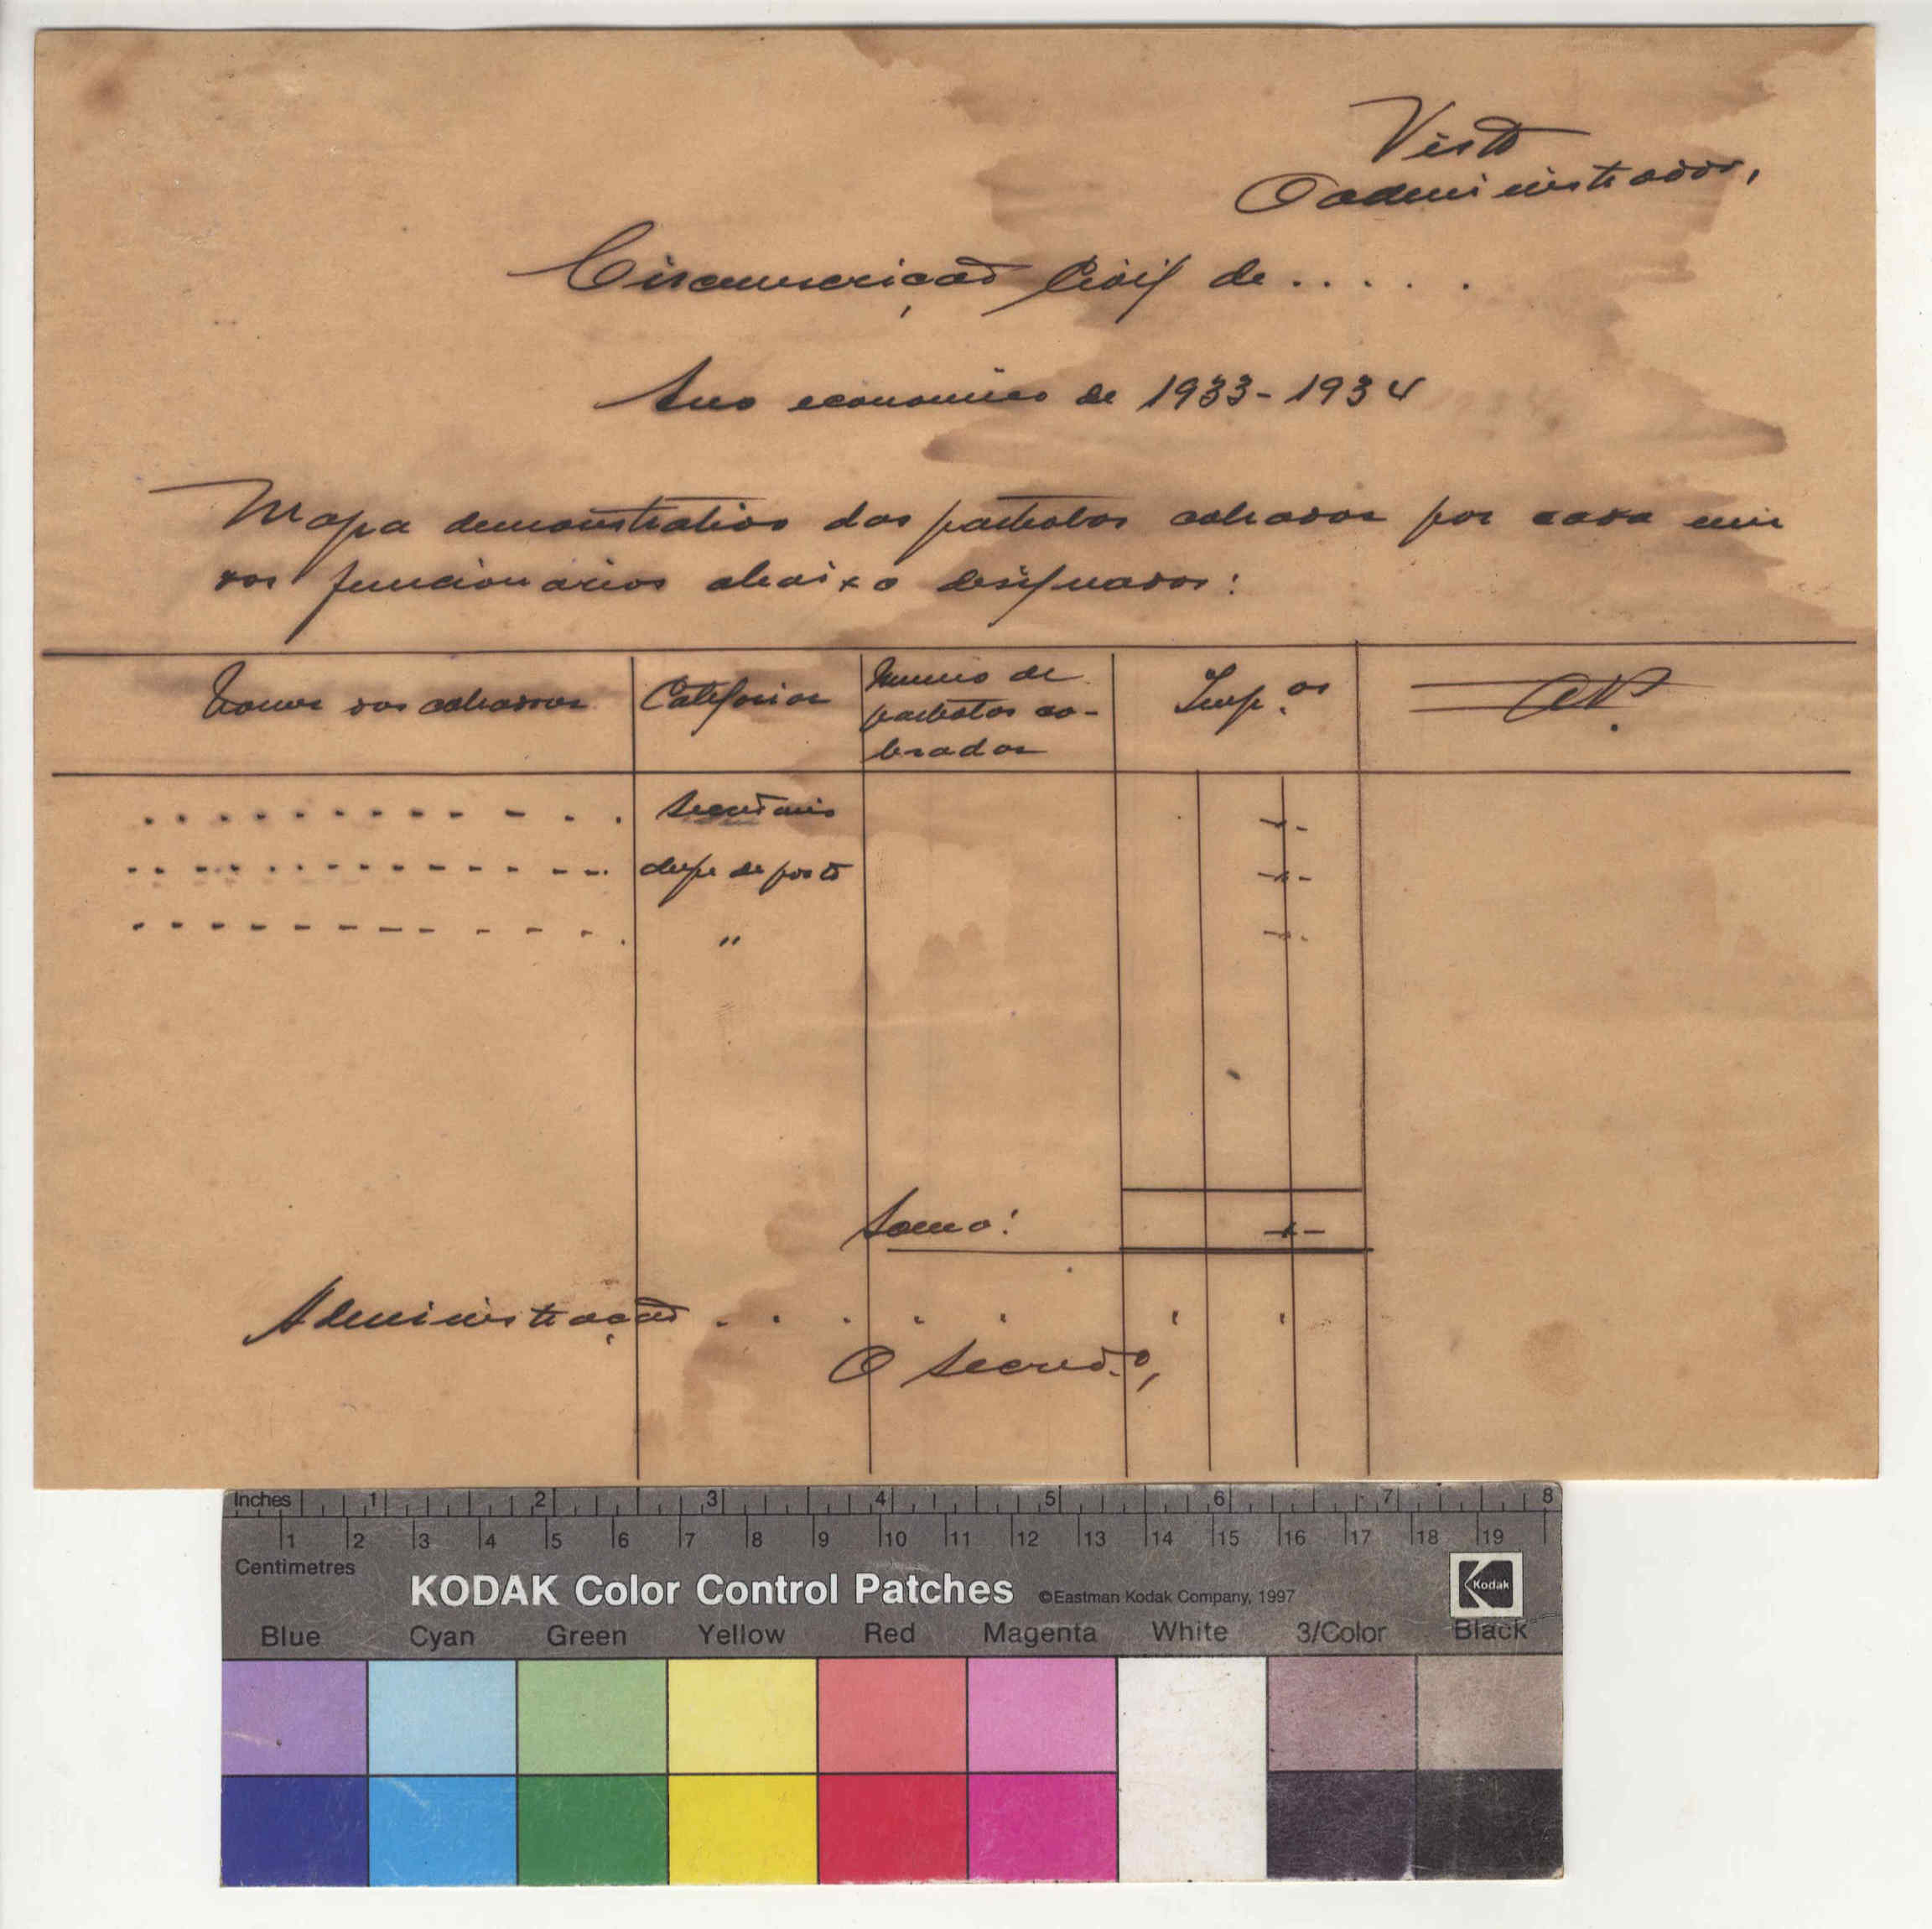 Visto
O administrador,
Circunscrição Civil de . . . . .
Ano economico de 1933-1934
Mapa demonstrativo das palhotas cobradas por cada um
dos funcionarios abaixo designados:
Nomes dos cobradores
Categorias
Numero de
palhotas co-
bradas
Imp.os
Secretario
chefe de posto
"
Soma:
Administração . . . . . .
O Secret.o,
Inches 1 2 3 4 5 6 7 8
1 2 3 4 5 6 7 8 9 10 11 12 13 14 15 16 17 18 19
Centimetres
KODAK Color Control Patches ©Eastman Kodak Company, 1997 Kodak
Blue Cyan Green Yellow Red Magenta White 3/Color Black